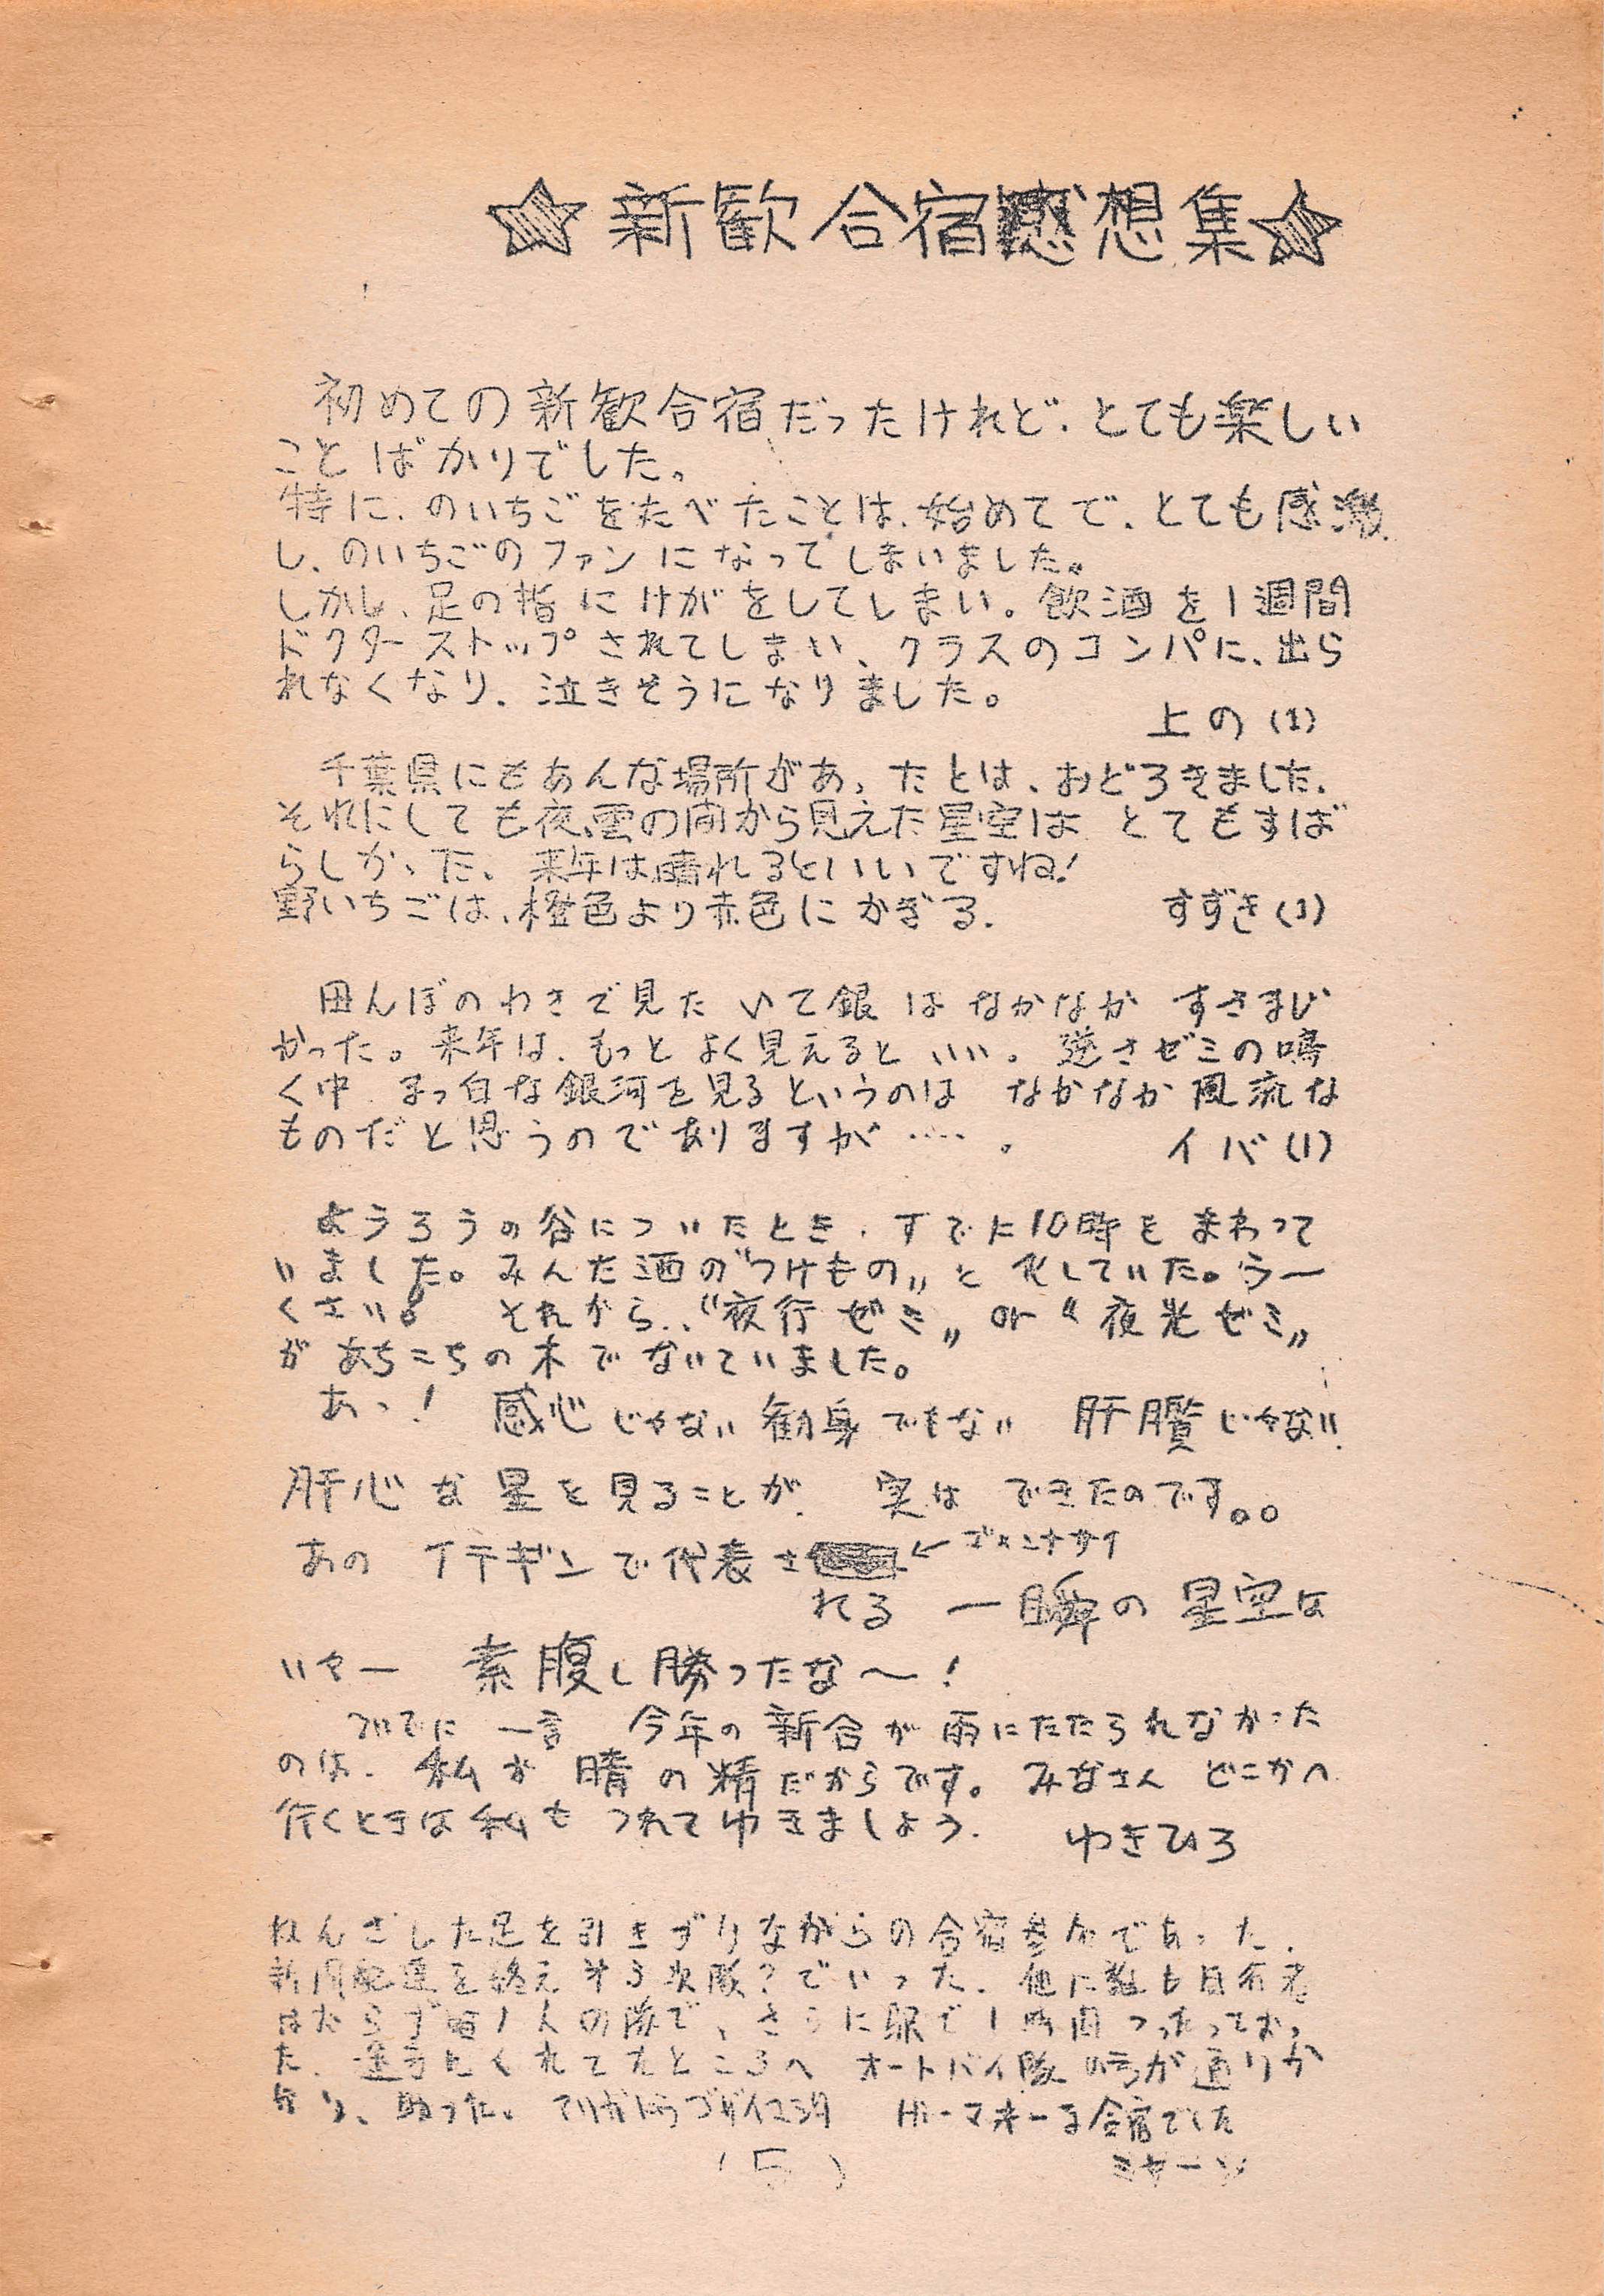 ☆新歓合宿感想集☆
初めての新歓合宿だったけれど、とても楽しい
ことばかりでした。
特に、のいちごをたべたことは、始めてで、とても感激
し、のいちごのファンになってしまいました。
しかし、足の指にけがをしてしまい。飲酒を1週間
ドクターストップされてしまい、クラスのコンパに、出ら
れなくなり、泣きそうになりました。
上の(1)
千葉県にもあんな場所があったとは、おどろきました。
それにしても夜、雲の間から見えた星空は とてもすば
らしかった。来年は晴れるといいですね!
野いちごは、橙色より赤色にかぎる。
すずき(1)
田んぼのわきで見た いて銀 は なかなか すさまじ
かった。来年は、もっと よく見えると いい。逆さゼミの鳴
く中 まっ白な銀河を見るというのは なかなか 風流な
ものだと思うのでありますが……。
イバ(1)
ようろうの谷についたとき、すでに10時をまわって
いました。みんな酒の"つけもの"と化していた。うー
くさい。 それから、"夜行ゼミ" or "夜光ゼミ"
があちこちの木でないていました。
あっ! 感心じゃない 勧身でもない 肝臓じゃない
肝心な星を見ることが、実は できたのです。。
あの イテギンで代表さ ←ゴメンナサイ
れる 一瞬の 星空は
いやー 素腹し勝ったな〜!
ついでに 一言 今年の新合が雨にたたられなかった
のは、私が 晴の精だからです。みなさん どこかへ
行くときは私も つれてゆきましょう。
ゆきひろ
ねんざした足を引きずりながらの合宿参加であった。
新聞配達を終え 次隊?でいった。他に
1人の隊で、さらに駅で1時間つったっておっ
た。くれてたところへ オートバイ隊 が通りか
かり、助かった。アリガトウゴザイマシタ Hi-マネーな合宿でした
ミヤーン
(5)